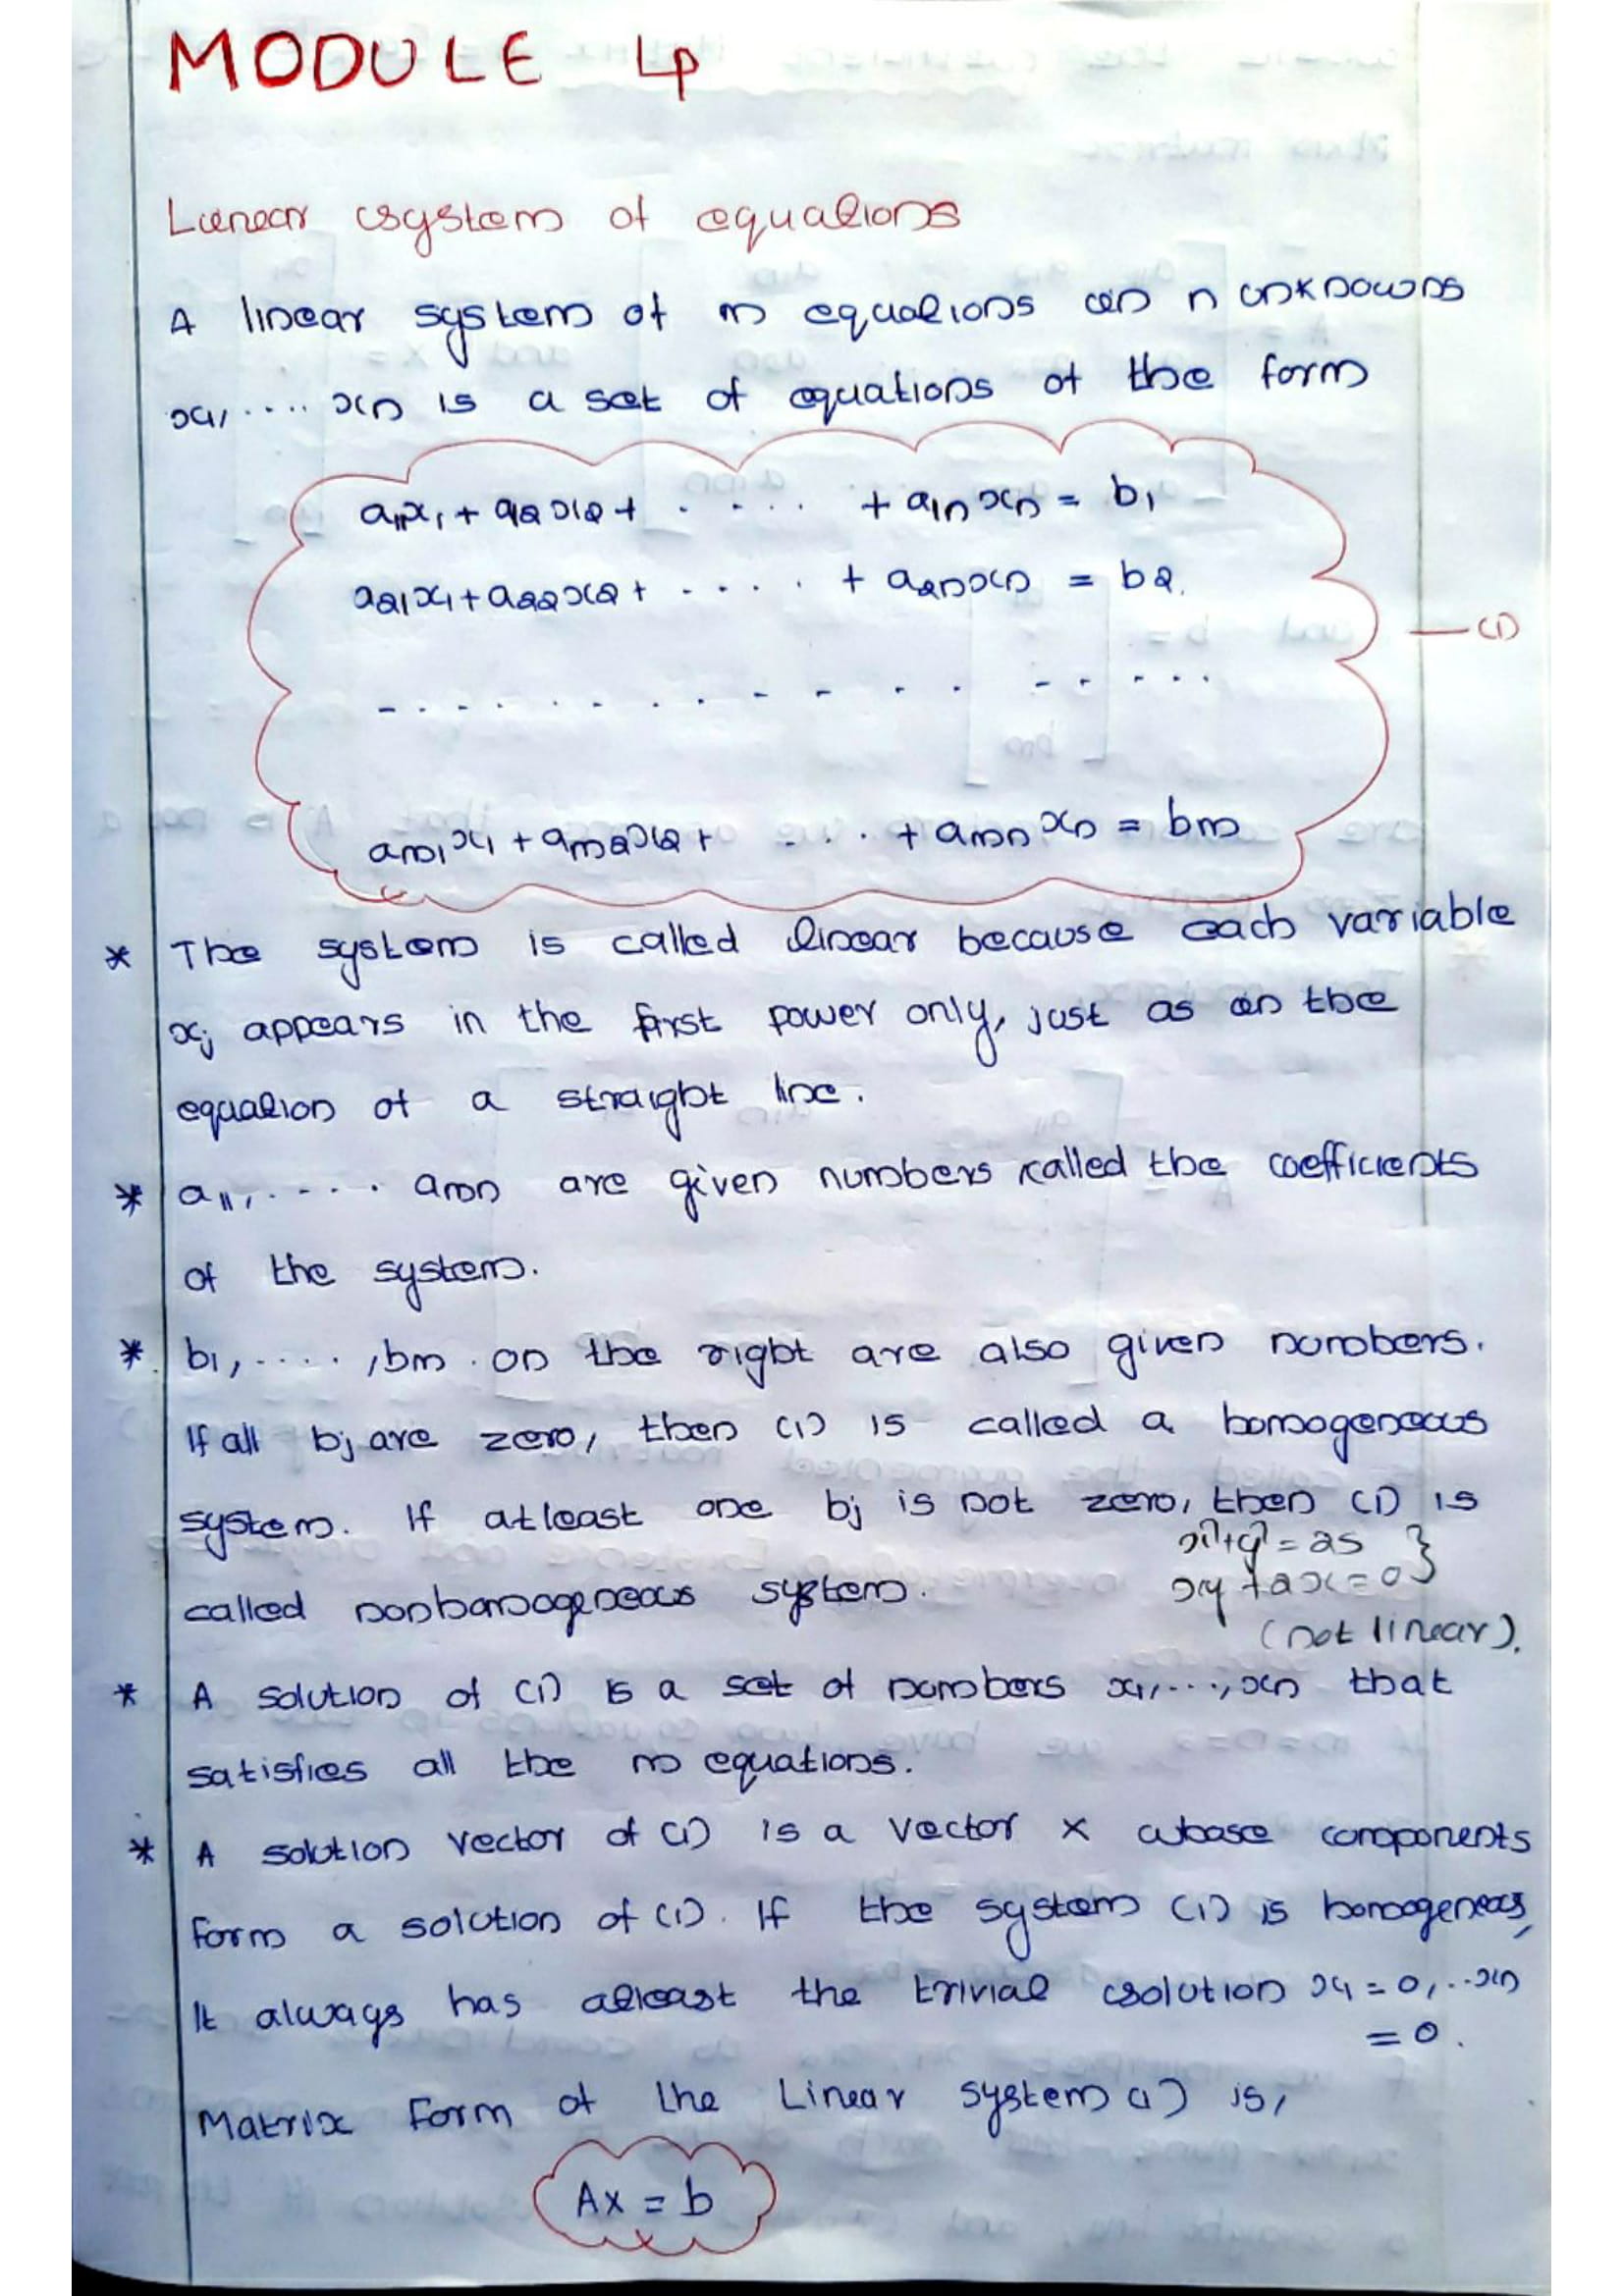 MODULE 4
Linear system of equations
A linear system of m equations in n unknowns
x₁, .... xₙ is a set of equations of the form
a₁₁x₁ + a₁₂x₂ + . . . . . + a₁ₙxₙ = b₁
a₂₁x₁ + a₂₂x₂ + . . . . . + a₂ₙxₙ = b₂.
— (1)
aₘ₁x₁ + aₘ₂x₂ + . . . + aₘₙxₙ = bₘ
* The system is called linear because each variable
xⱼ appears in the first power only, just as in the
equation of a straight line.
* a₁₁, . . . . aₘₙ are given numbers called the coefficients
of the system.
* b₁, . . . . , bₘ on the right are also given numbers.
If all bⱼ are zero, then (1) is called a homogeneous
system. If atleast one bⱼ is not zero, then (1) is
called nonhomogeneous system.
x²+y²=25 }
xy+2x=0 }
(not linear).
* A solution of (1) is a set of numbers x₁, ..., xₙ that
satisfies all the m equations.
* A solution vector of (1) is a vector x whose components
form a solution of (1). If the system (1) is homogeneous,
It always has atleast the trivial solution x₁ = 0, .. xₙ
= 0.
Matrix Form of the Linear system (1) is,
Ax = b